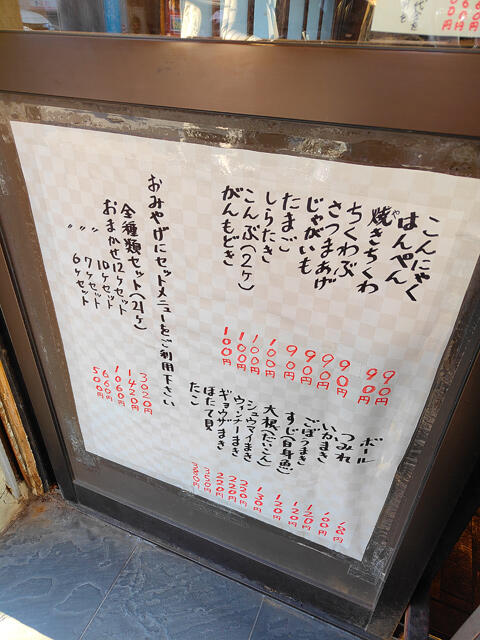 こんにゃく 90円
はんぺん 90円
焼きちくわ
ちくわぶ 90円
さつまあげ 90円
じゃがいも 90円
たまご 90円
しらたき 110円
こんぶ(2ヶ) 110円
がんもどき 100円
ボール
つみれ
いかまき
ごぼうまき 120円
すじ(白身魚) 120円
大根(だいこん) 120円
シュウマイまき 130円
ウィンナーまき 220円
ギョウザまき 220円
ほたて貝 350円
たこ 380円
おみやげにセットメニューをご利用下さい
全種類セット(21ヶ) 3020円
おまかせ12ヶセット 1420円
〃 10ヶセット 1060円
〃 7ヶセット 660円
〃 6ヶセット 500円